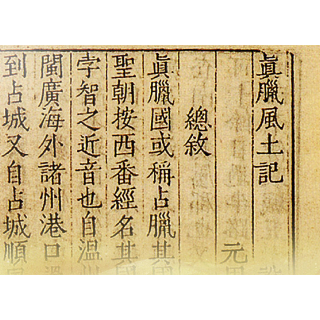 眞臘風土記
元
總敘
眞臘國或稱占臘其
聖朝按西番經名其
字智之近音也自溫
閩廣海外諸州港口
到占城又自占城順